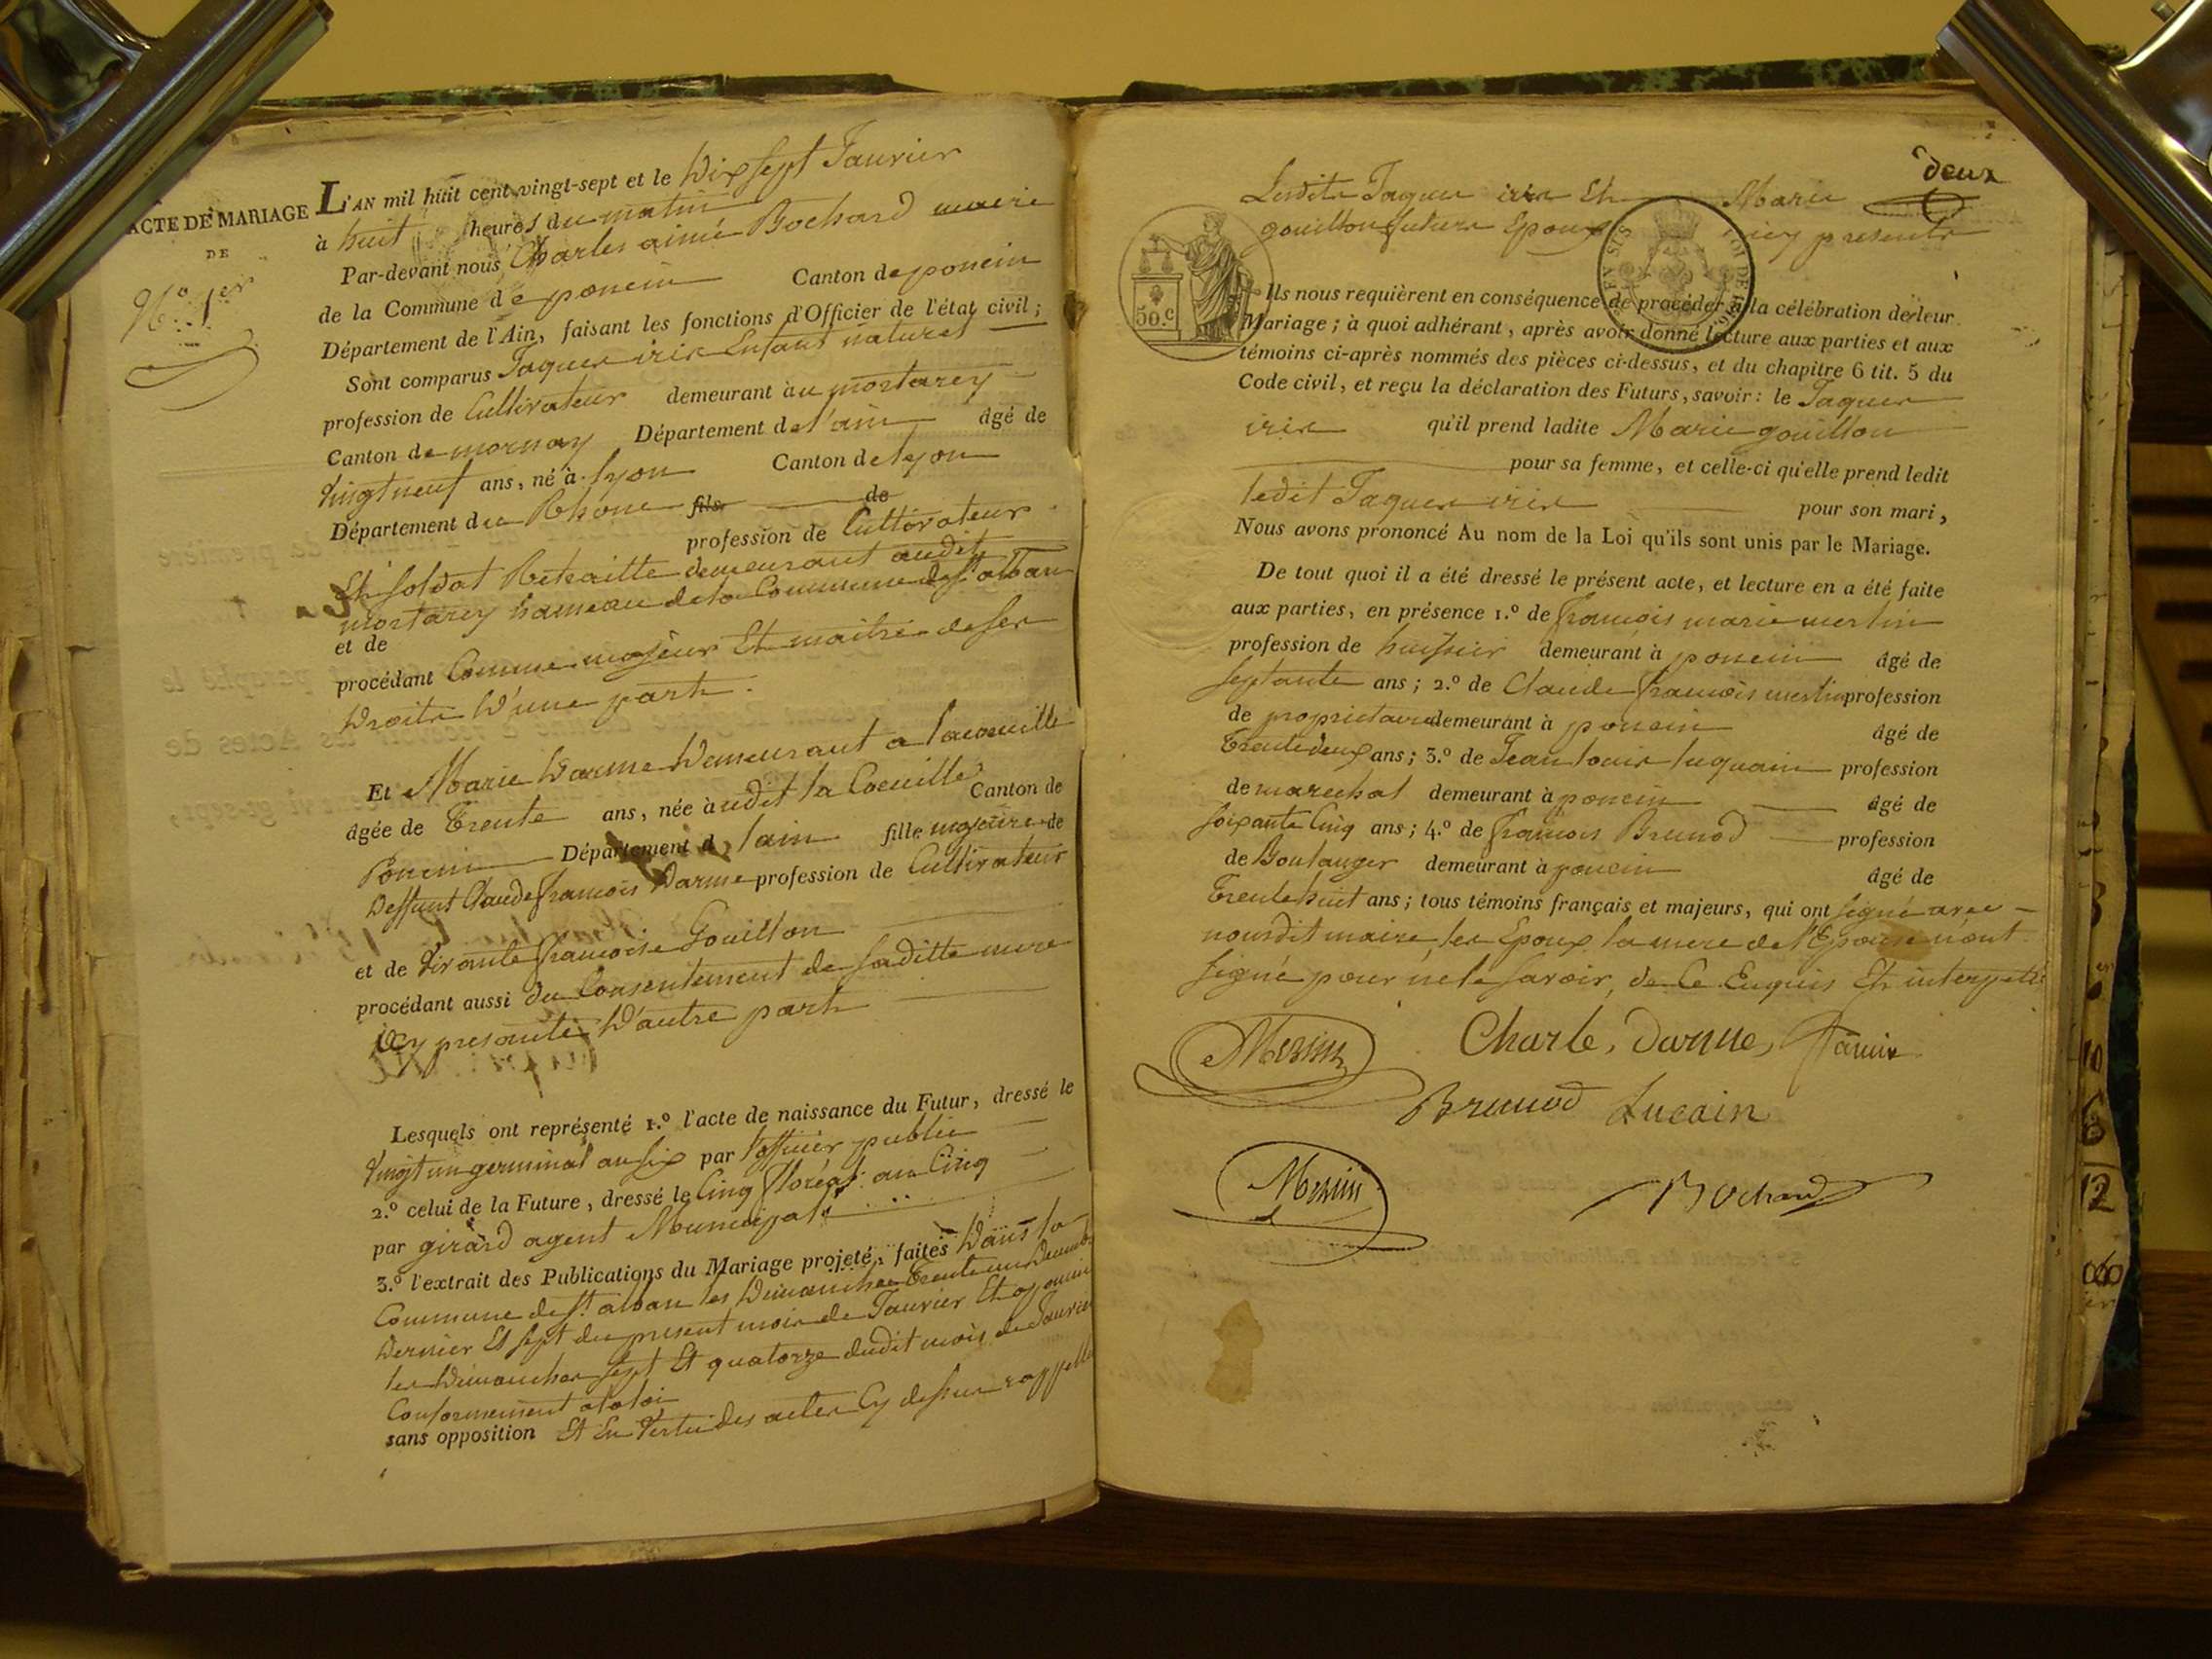 ACTE DE MARIAGE
DE
N.o 1.er
L'AN mil huit cent vingt-sept et le Dix sept Janvier
à huit heures du matin
Par-devant nous Charles aimé Bochard maire
de la Commune de poncin Canton de poncin
Département de l'Ain, faisant les fonctions d'Officier de l'état civil ;
Sont comparus Jaques iris Enfant naturel
profession de Cultivateur demeurant au mortarey
Canton de mornay Département de l'ain âgé de
Vingt neuf ans, né à lyon Canton de lyon
Département du Rhone fils de
profession de Cultivateur
Et soldat Retraitté demeurant audit
mortarey hameau de la Commune de St alban
et de
procédant Comme majeur Et maitre de ses
Droits D'une part.
Et Marie Darme Demeurant a lacoeuille
âgée de Trente ans, née àudit la Coeuille Canton de
Poncin Département de lain fille majeure de
Deffunt Claude francois Darme profession de Cultivateur
et de Vivante francoise Gouillon
procédant aussi du Consentement de saditte mere
icy presante D'autre part
Lesquels ont représenté 1.º l'acte de naissance du Futur, dressé le
Vingt un germinal an six par l'officier public
2.º celui de la Future, dressé le Cinq floréal an Cinq
par girard agent Municipal
3.º l'extrait des Publications du Mariage projeté, faites Dans la
Commune de St alban les Dimanches Trente un Decembre
Dernier Et sept du present mois de Janvier Et a poncin
les Dimanches sept Et quatorze dudit mois de Janvier
Conformement a la loi
sans opposition Et En Vertu des actes Cy dessus rappellé
deux
Lesdits Jaques iris Et Marie
gouillon futurs Epoux icy presents
50.c
LOI DE 1816.
Ils nous requièrent en conséquence de procéder à la célébration de leur
Mariage ; à quoi adhérant, après avoir donné lecture aux parties et aux
témoins ci-après nommés des pièces ci-dessus, et du chapitre 6 tit. 5 du
Code civil, et reçu la déclaration des Futurs, savoir : le Jaques
iris qu'il prend ladite Marie gouillon
pour sa femme, et celle-ci qu'elle prend ledit
ledit Jaques iris pour son mari,
Nous avons prononcé Au nom de la Loi qu'ils sont unis par le Mariage.
De tout quoi il a été dressé le présent acte, et lecture en a été faite
aux parties, en présence 1.º de françois marie mermin
profession de huissier demeurant à poncin âgé de
septante ans ; 2.º de Claude françois mermin profession
de proprietaire demeurant à poncin âgé de
Trente deux ans ; 3.º de Jean louis luquain profession
de marechal demeurant à poncin âgé de
soixante Cinq ans ; 4.º de françois Brunod profession
de Boulanger demeurant à poncin âgé de
Trente huit ans ; tous témoins français et majeurs, qui ont signé avec
nousdit maire, les Epoux la mere de l'Epouse n'ont
signé pour ne le savoir, de Ce Enquis Et interpellé
Charle, Darme,
Brunod Lucain
Bochard